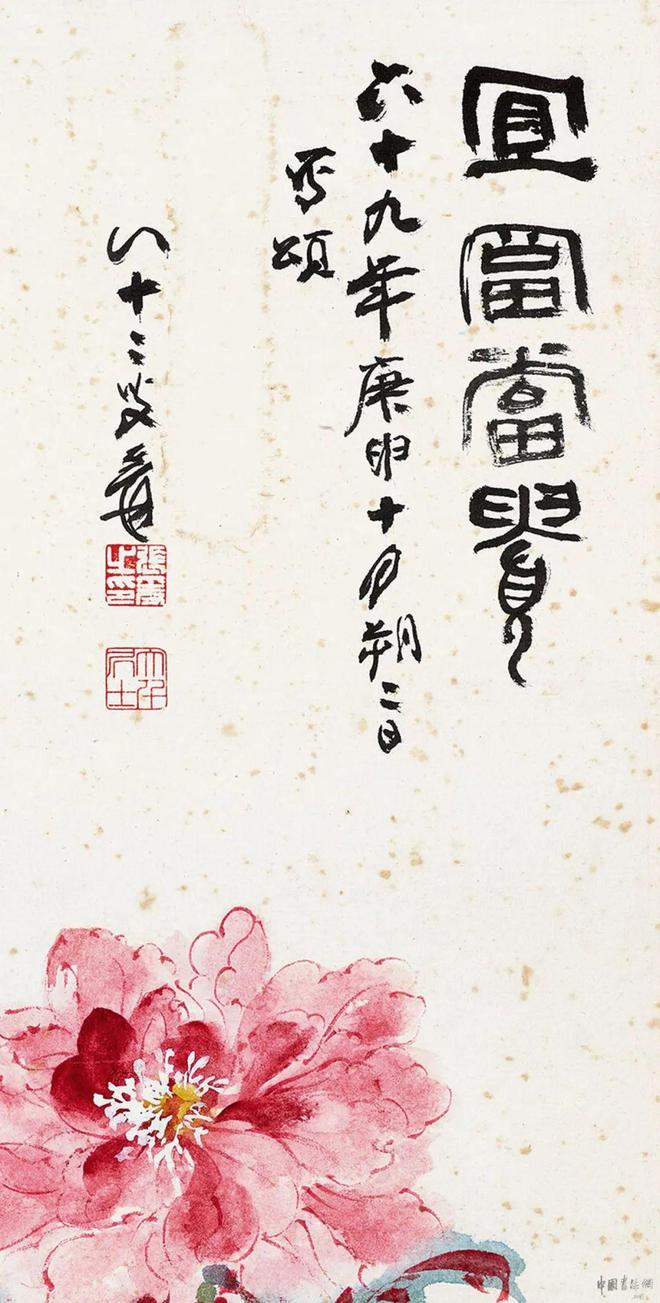 宜富當貴
六十九年庚申十月朔二日
写頌
八十二叟爰
張爰之印
大千居士
中國書法網